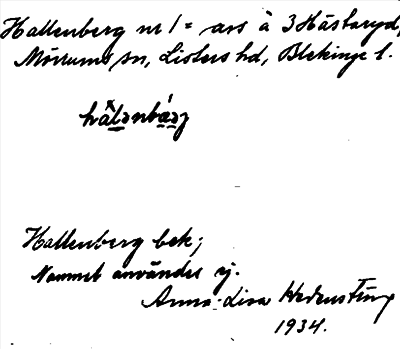 Hallenberg nr 1 = avs å 3 Hästaryd,
Mörrums sn, Listers hd, Blekinge l.
Hallenberg bek;
Namnet användes ej.
Anna-Lisa
1934.